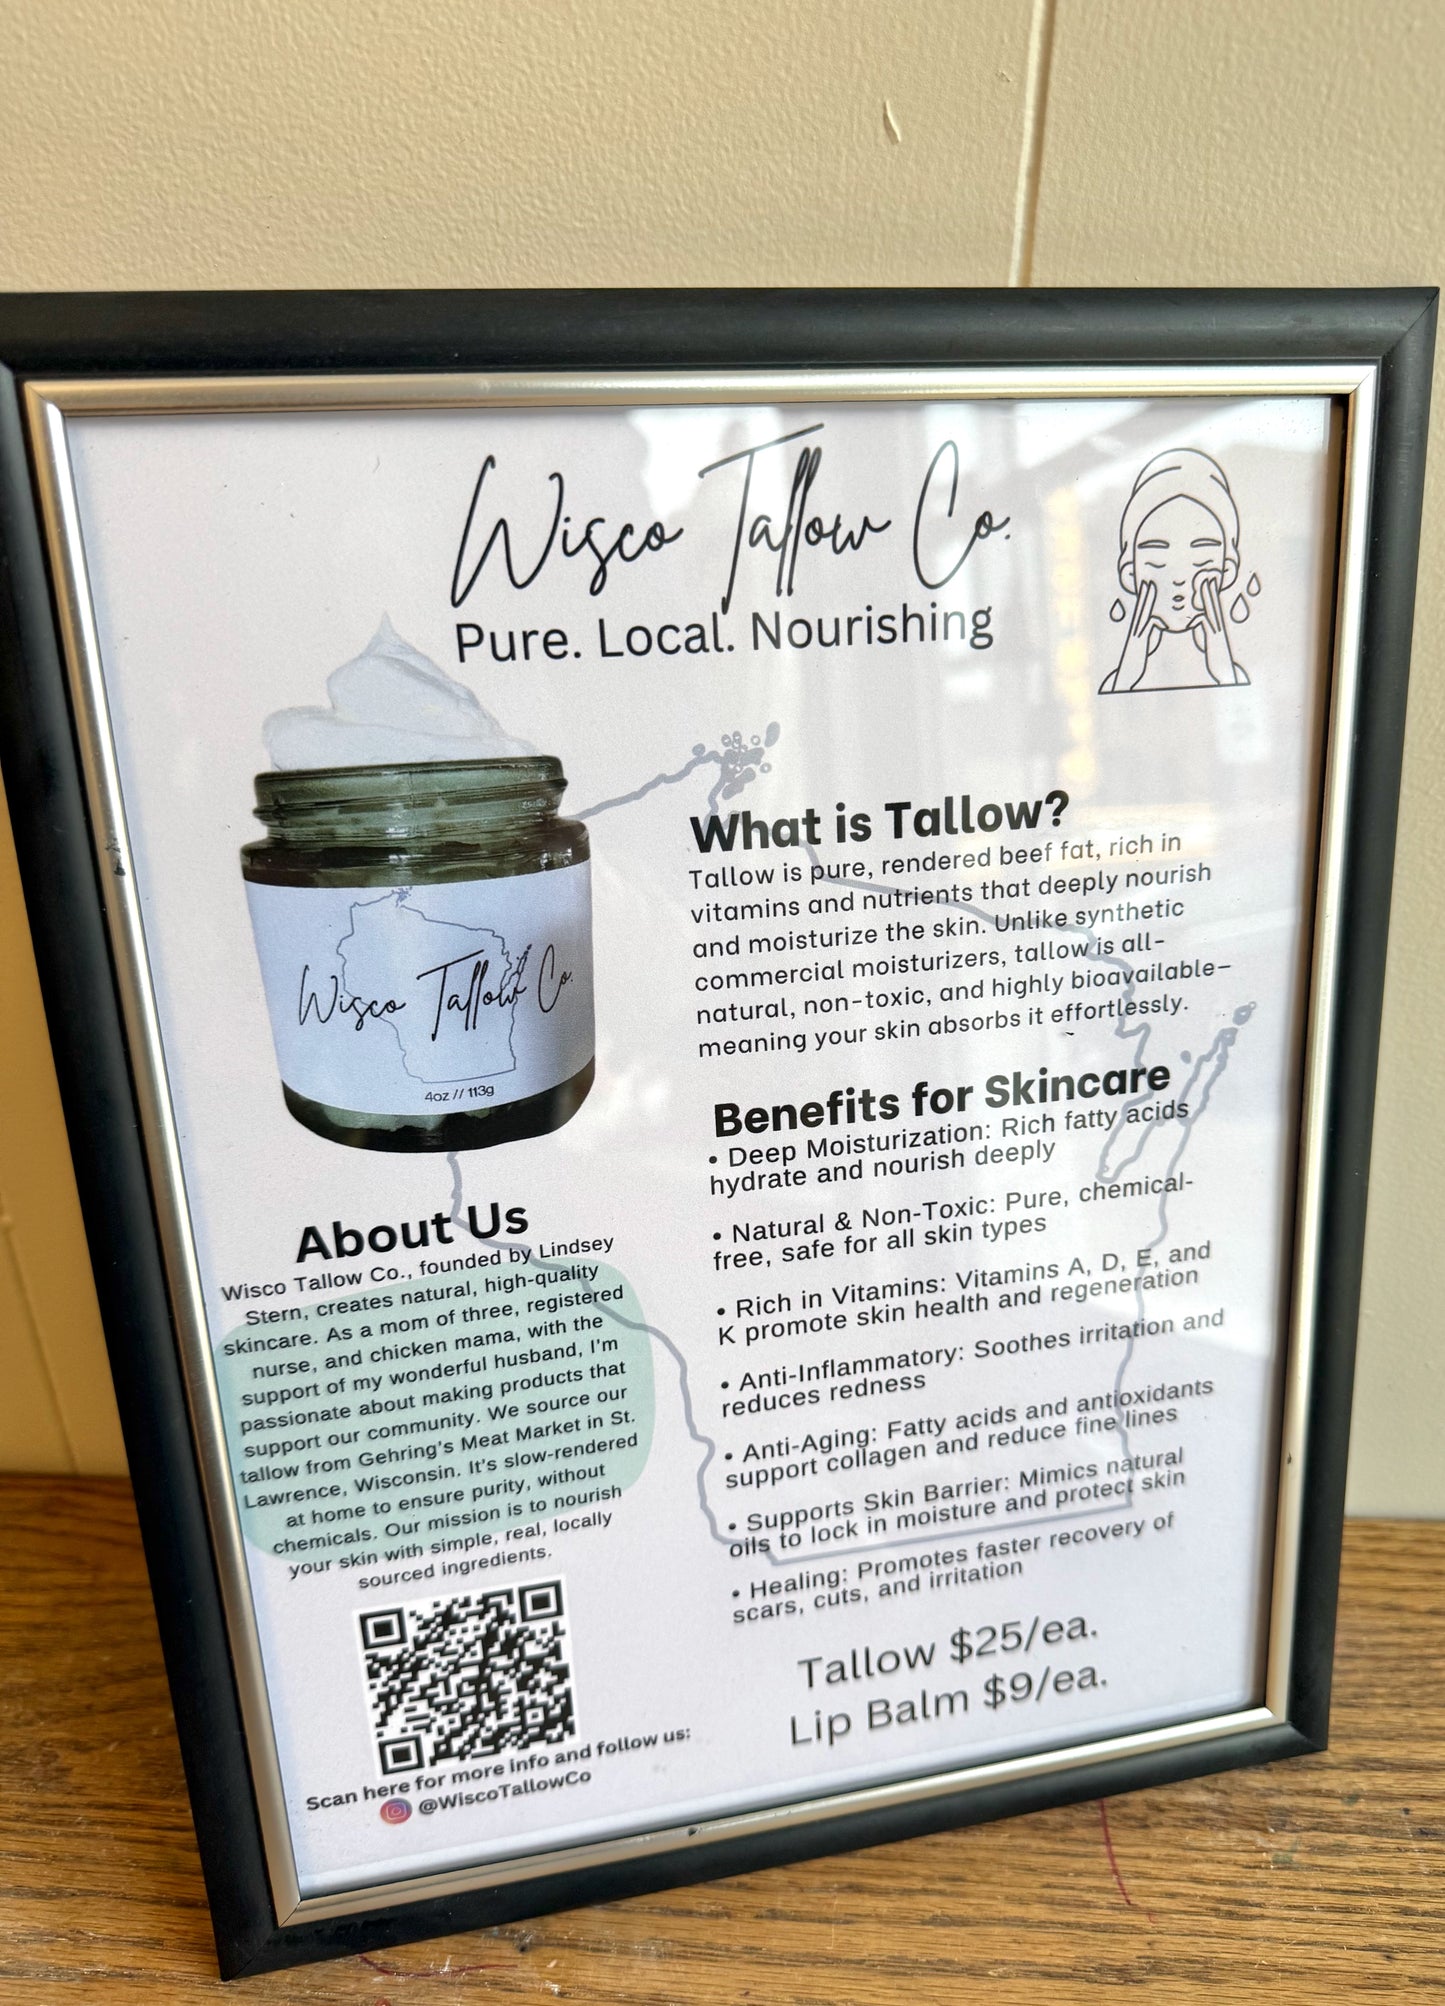 Wisco Tallow Co.
Pure. Local. Nourishing
Wisco Tallow Co.
4oz // 113g
What is Tallow?
Tallow is pure, rendered beef fat, rich in
vitamins and nutrients that deeply nourish
and moisturize the skin. Unlike synthetic
commercial moisturizers, tallow is all-
natural, non-toxic, and highly bioavailable—
meaning your skin absorbs it effortlessly.
Benefits for Skincare
• Deep Moisturization: Rich fatty acids
hydrate and nourish deeply
• Natural & Non-Toxic: Pure, chemical-
free, safe for all skin types
• Rich in Vitamins: Vitamins A, D, E, and
K promote skin health and regeneration
• Anti-Inflammatory: Soothes irritation and
reduces redness
• Anti-Aging: Fatty acids and antioxidants
support collagen and reduce fine lines
• Supports Skin Barrier: Mimics natural
oils to lock in moisture and protect skin
• Healing: Promotes faster recovery of
scars, cuts, and irritation
Tallow $25/ea.
Lip Balm $9/ea.
About Us
Wisco Tallow Co., founded by Lindsey
Stern, creates natural, high-quality
skincare. As a mom of three, registered
nurse, and chicken mama, with the
support of my wonderful husband, I'm
passionate about making products that
support our community. We source our
tallow from Gehring's Meat Market in St.
Lawrence, Wisconsin. It's slow-rendered
at home to ensure purity, without
chemicals. Our mission is to nourish
your skin with simple, real, locally
sourced ingredients.
Scan here for more info and follow us:
@WiscoTallowCo